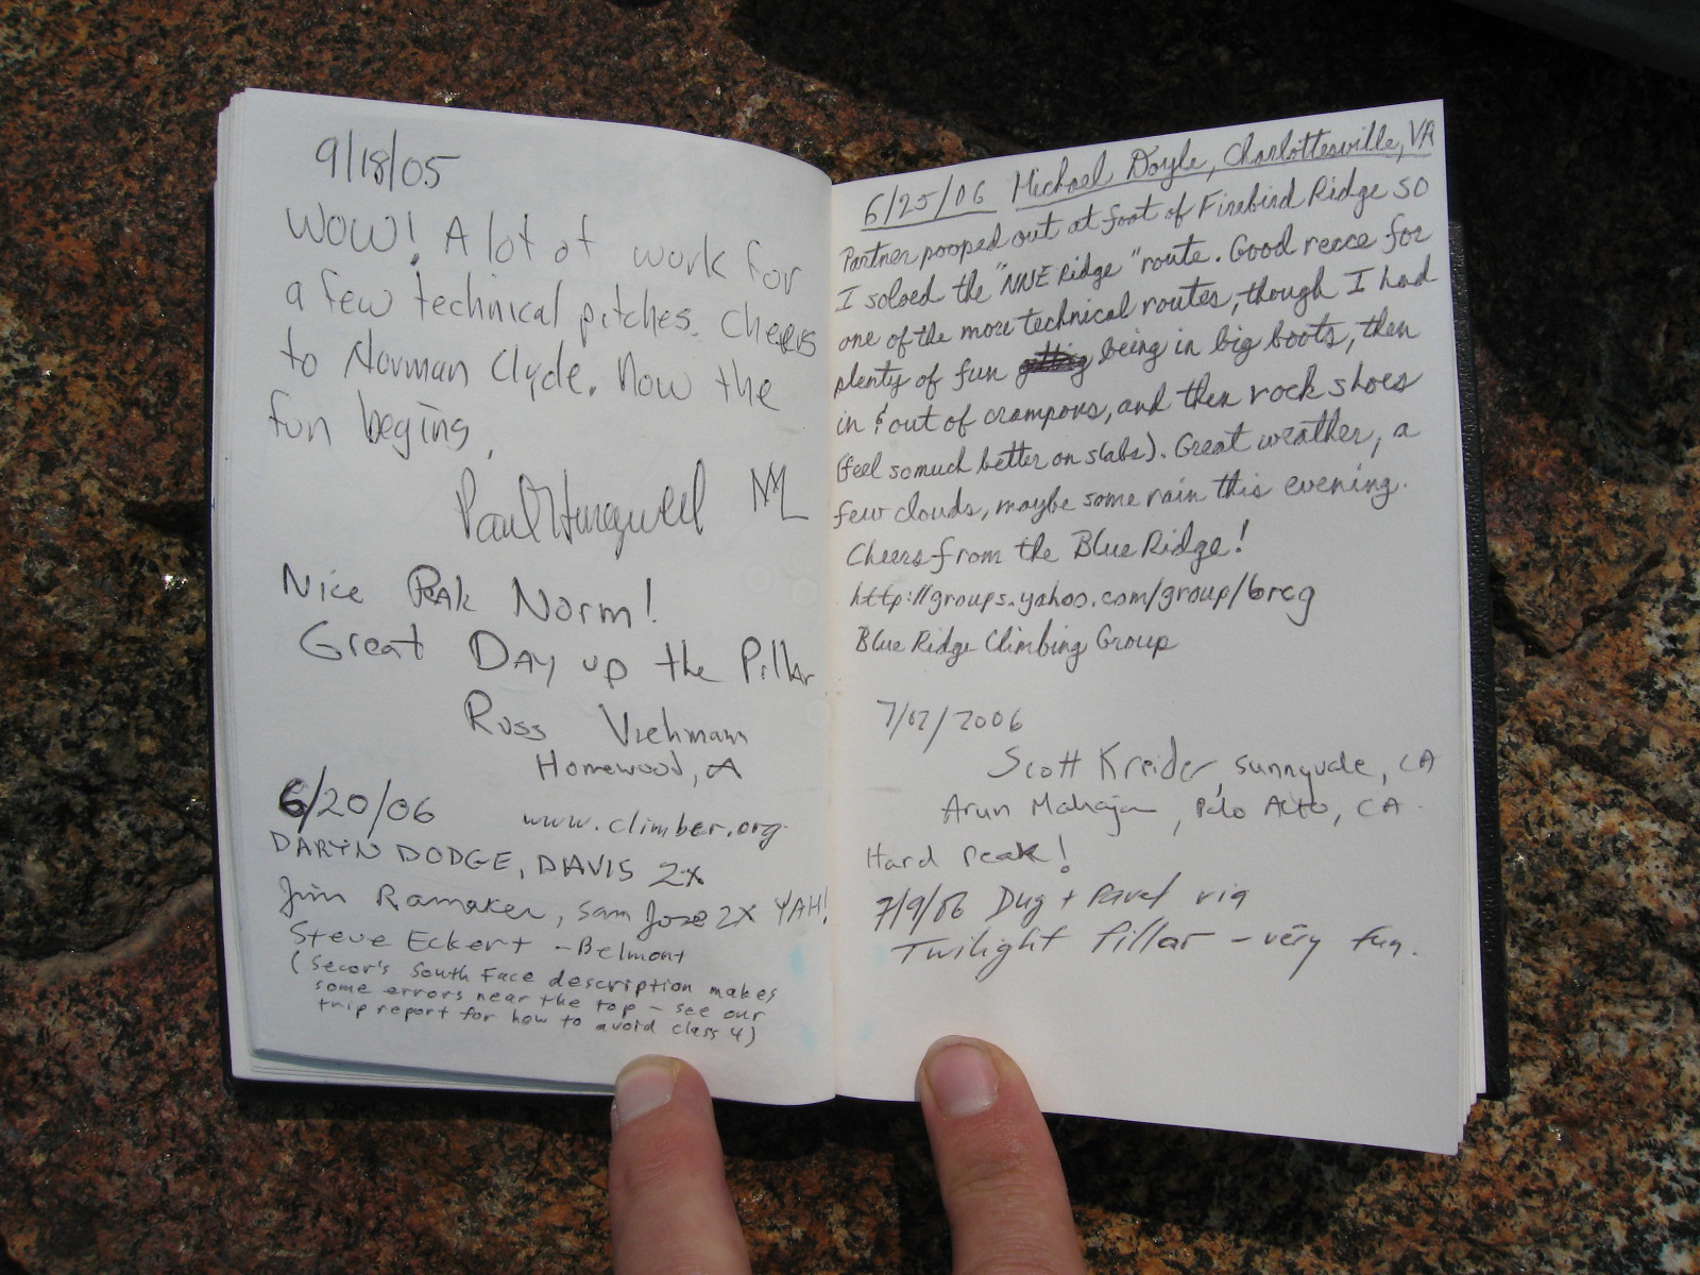 9/18/05
WOW! A lot of work for
a few technical pitches. Cheers
to Norman Clyde. Now the
fun begins.
Paul
Nice Peak Norm!
Great Day up the Pillar
Russ Viehmann
Homewood, CA
6/20/06 www.climber.org
DARYN DODGE, DAVIS 2x
Jim Ramaker, San Jose 2x YAH!
Steve Eckert - Belmont
(Secor's South Face description makes
some errors near the top - see our
trip report for how to avoid class 4)
6/25/06 Michael Doyle, Charlottesville, VA
Partner pooped out at foot of Firebird Ridge so
I soloed the "NNE Ridge" route. Good recce for
one of the more technical routes, though I had
plenty of fun being in big boots, then
in & out of crampons, and then rock shoes
(feel so much better on slabs). Great weather, a
few clouds, maybe some rain this evening.
Cheers from the Blue Ridge!
http://groups.yahoo.com/group/brcg
Blue Ridge Climbing Group
7/02/2006
Scott Kreider, Sunnyvale, CA
Arun Mahajan, Palo Alto, CA.
Hard Peak!
7/9/06 Dug + Pavel via
Twilight Pillar - very fun.